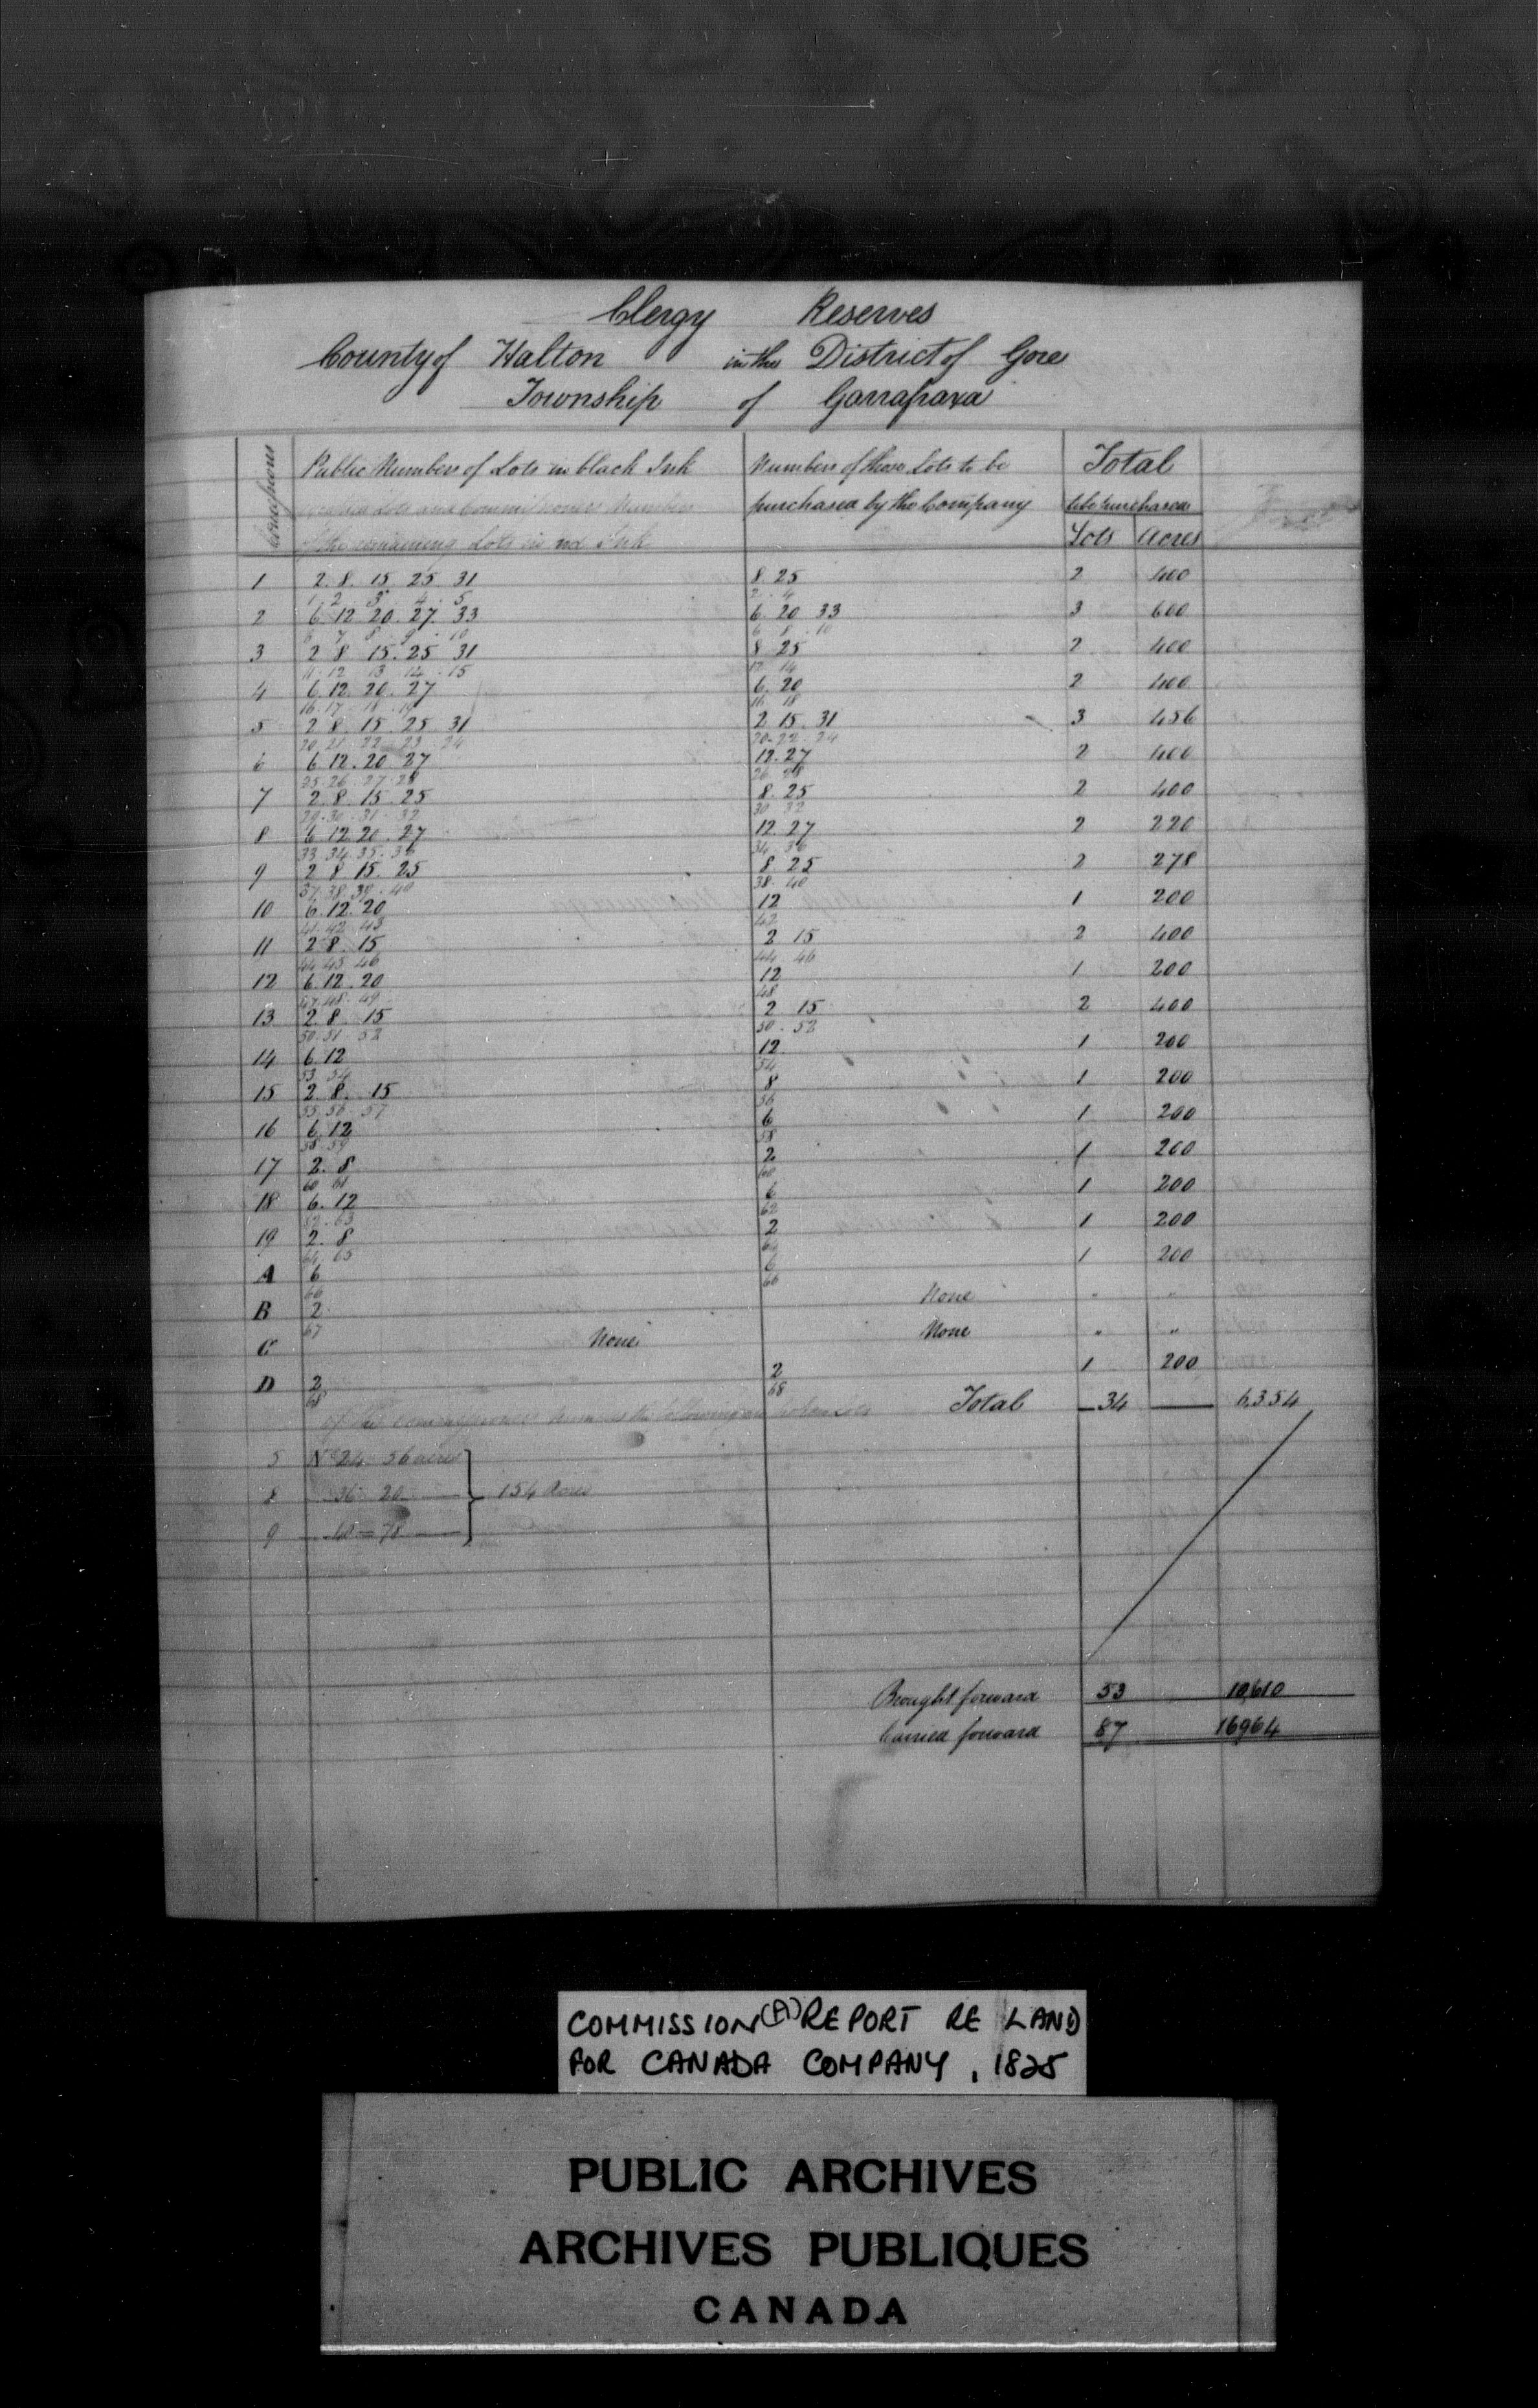 Clergy Reserves
County of Halton in the District of Gore
Township of Garrafraxa
Concessions
Public Numbers of Lots in black Ink
Numbers of those Lots to be
Total
Lots and Commissioners Numbers
purchased by the Company
to be purchased
of the remaining Lots in red Ink
Lots Acres
1 2. 8. 15. 25 31 8. 25 2 400
1. 2. 3. 4. 5 2. 4
2 6. 12 20. 27. 33 6. 20 33 3 600
6 7 8. 9. 10 6 8. 10
3 2 8 15. 25 31 8 25 2 400
11. 12 13 14. 15 12 14
4 6. 12. 20. 27 6. 20 2 400
16. 17. 18. 19 16. 18
5 2. 8. 15. 25. 31 2. 15. 31 3 456
20 21. 22. 23 24 20. 22. 24
6 6. 12. 20 27 12. 27 2 400
25. 26 27. 28 26. 28
7 2. 8. 15. 25 8. 25 2 400
29. 30. 31. 32 30 32
8 6 12 20. 27 12. 27 2 220
33 34. 35. 36 34. 36
9 2 8 15. 25 8. 25 2 278
37. 38. 39. 40 38. 40
10 6. 12. 20 12 1 200
41. 42. 43 42
11 2 8. 15 2 15 2 400
44 45 46 44. 46
12 6. 12. 20 12 1 200
47. 48. 49 48
13 2. 8. 15 2 15 2 400
50. 51. 52 50. 52
14 6. 12 12. 1 200
53. 54 54
15 2 8. 15 8 1 200
55. 56. 57 56
16 6. 12 6 1 200
58. 59 58
17 2. 8 2 1 200
60 61 60
18 6. 12 6 1 200
62. 63 62
19 2. 8 2 1 200
64. 65 64
A 6 6 1 200
66 66
B 2 None " "
67
C None None " "
D 2 2 1 200
68 68
of the commissioners numbers the following are broken Lots Total 34 6354
5 No 24 56 acres
8 36 20 154 Acres
9 40 = 78
Brought forward 53 10,610
Carried forward 87 16964
COMMISSION (A) REPORT RE LAND
FOR CANADA COMPANY, 1825
PUBLIC ARCHIVES
ARCHIVES PUBLIQUES
CANADA